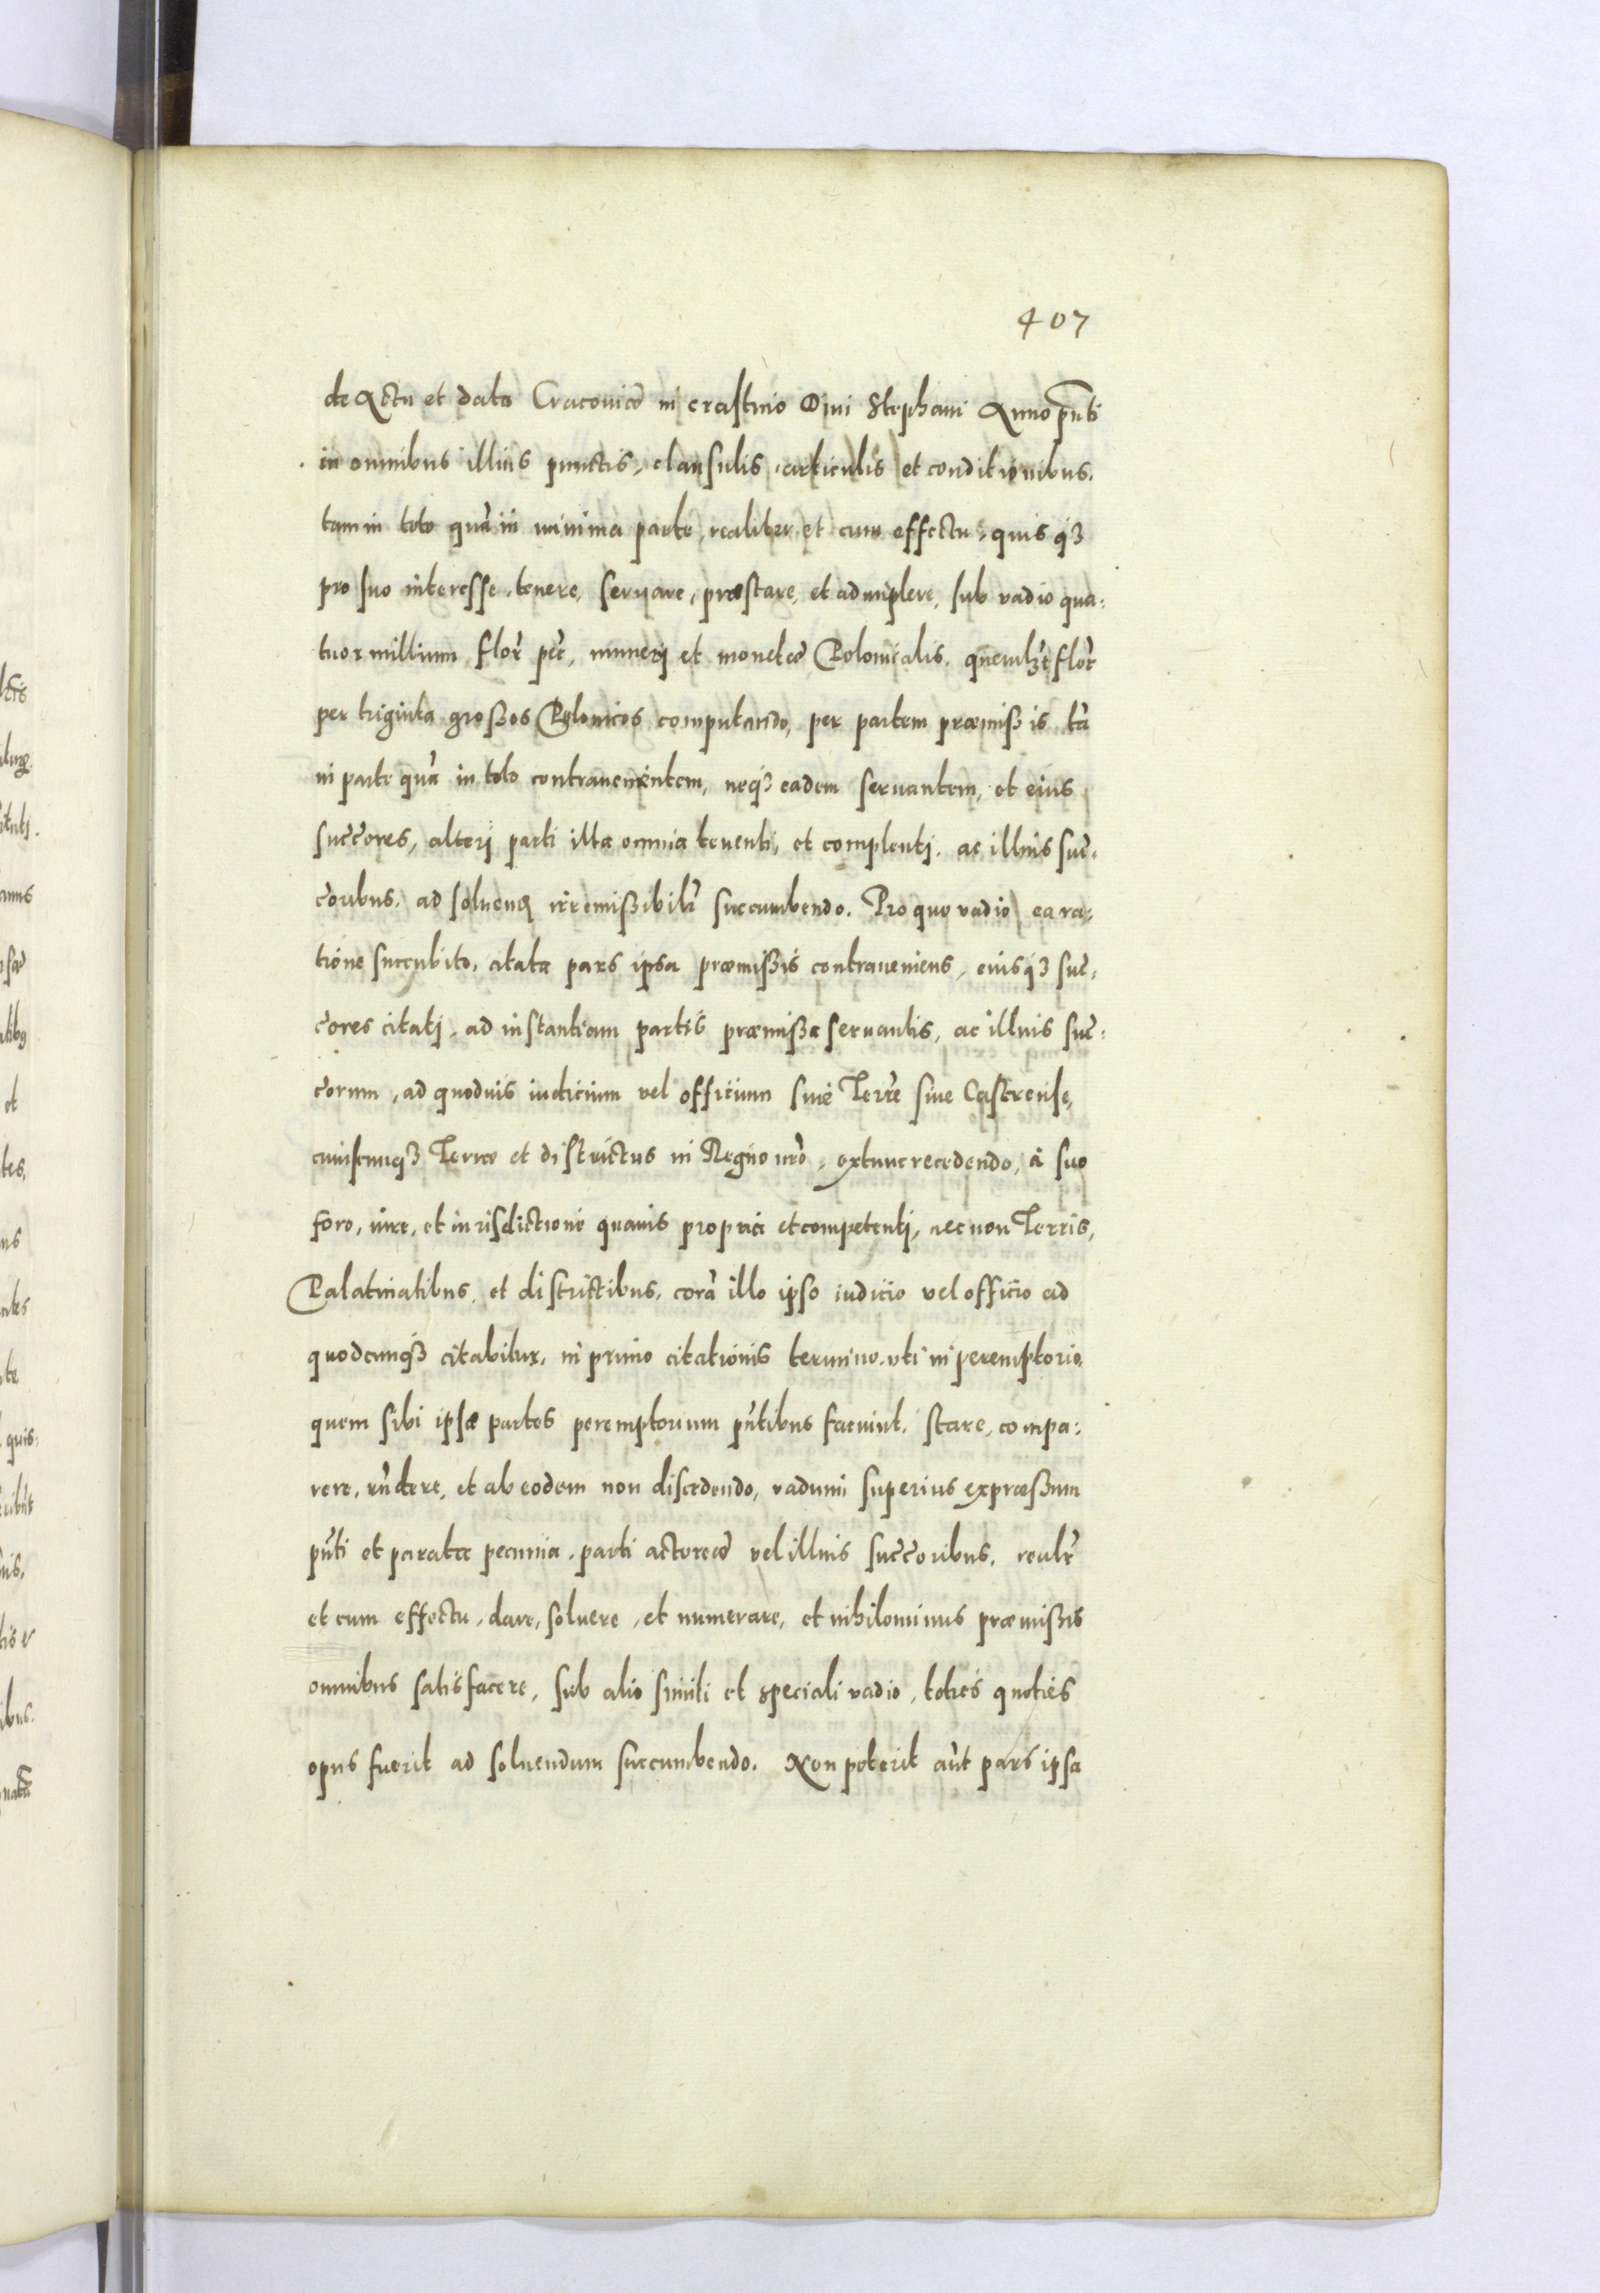 407
de Actu et data Cracoviæ in crastino Divi Stephani Anno pñti
in omnibus illius punctis, clausulis, articulis et conditionibus,
tam in toto quã in minima parte, realiter et cum effectu, quisqʒ
pro suo interesse, tenere, servare, præstare, et adimplere, sub vadio qua:
tuor millium flor̃ pec̃, numeri et monetæ Polonicalis, quemlʒt flor̃
per triginta grossos Polonicos computando, per partem præmissis tã
in parte quã in toto contravenientem, neqʒ eadem servantem, et eius
succ̃ores, alteri parti illa omnia tenenti, et complenti, ac illius suc̃:
c̃oribus, ad soluenđ irremissibilr̃ succumbendo. Pro quo vadio ea ra:
tione succubito, citata pars ipsa præmissis contraveniens, eiusqʒ suc̃:
c̃ores citati, ad instantiam partis præmissa servantis, ac illius suc̃:
c̃orum, ad quodvis iudicium vel officium sive Terr̃e sive Castrense,
cuiscunqʒ Terræ et districtus in Regno nr̃o, extunc recedendo, à suo
foro, iure, et iurisdictione quavis propria et competenti, nec non Terris,
Palatinatibus, et districtibus, corã illo ipso iudicio vel officio ad
quodcunqʒ citabitur, in primo citationis termino, uti in peremptorio,
quem sibi ipsæ partes peremptorium pñtibus faciunt, stare, compa:
rere, rñdere, et ab eodem non discedendo, vadium superius expressum
pñti et parata pecunia, parti actoreæ vel illius succ̃oribus, realr̃
et cum effectu, dare, soluere, et numerare, et nihilominus præmissis
omnibus satisfacere, sub alio simili et speciali vadio, toties quoties
opus fuerit ad soluendum succumbendo. Non poterit aũt pars ipsa